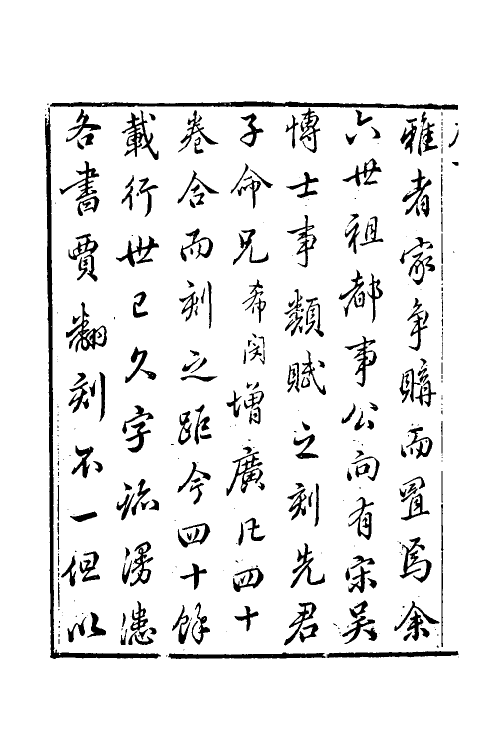 雅者家爭購而置焉余
六世祖都事公向有宋吳
博士事類賦之刻先君
子命兄希閔增廣凡四十
卷合而刻之距今四十餘
載行世已久字跡漫漶
各書賈翻刻不一但以